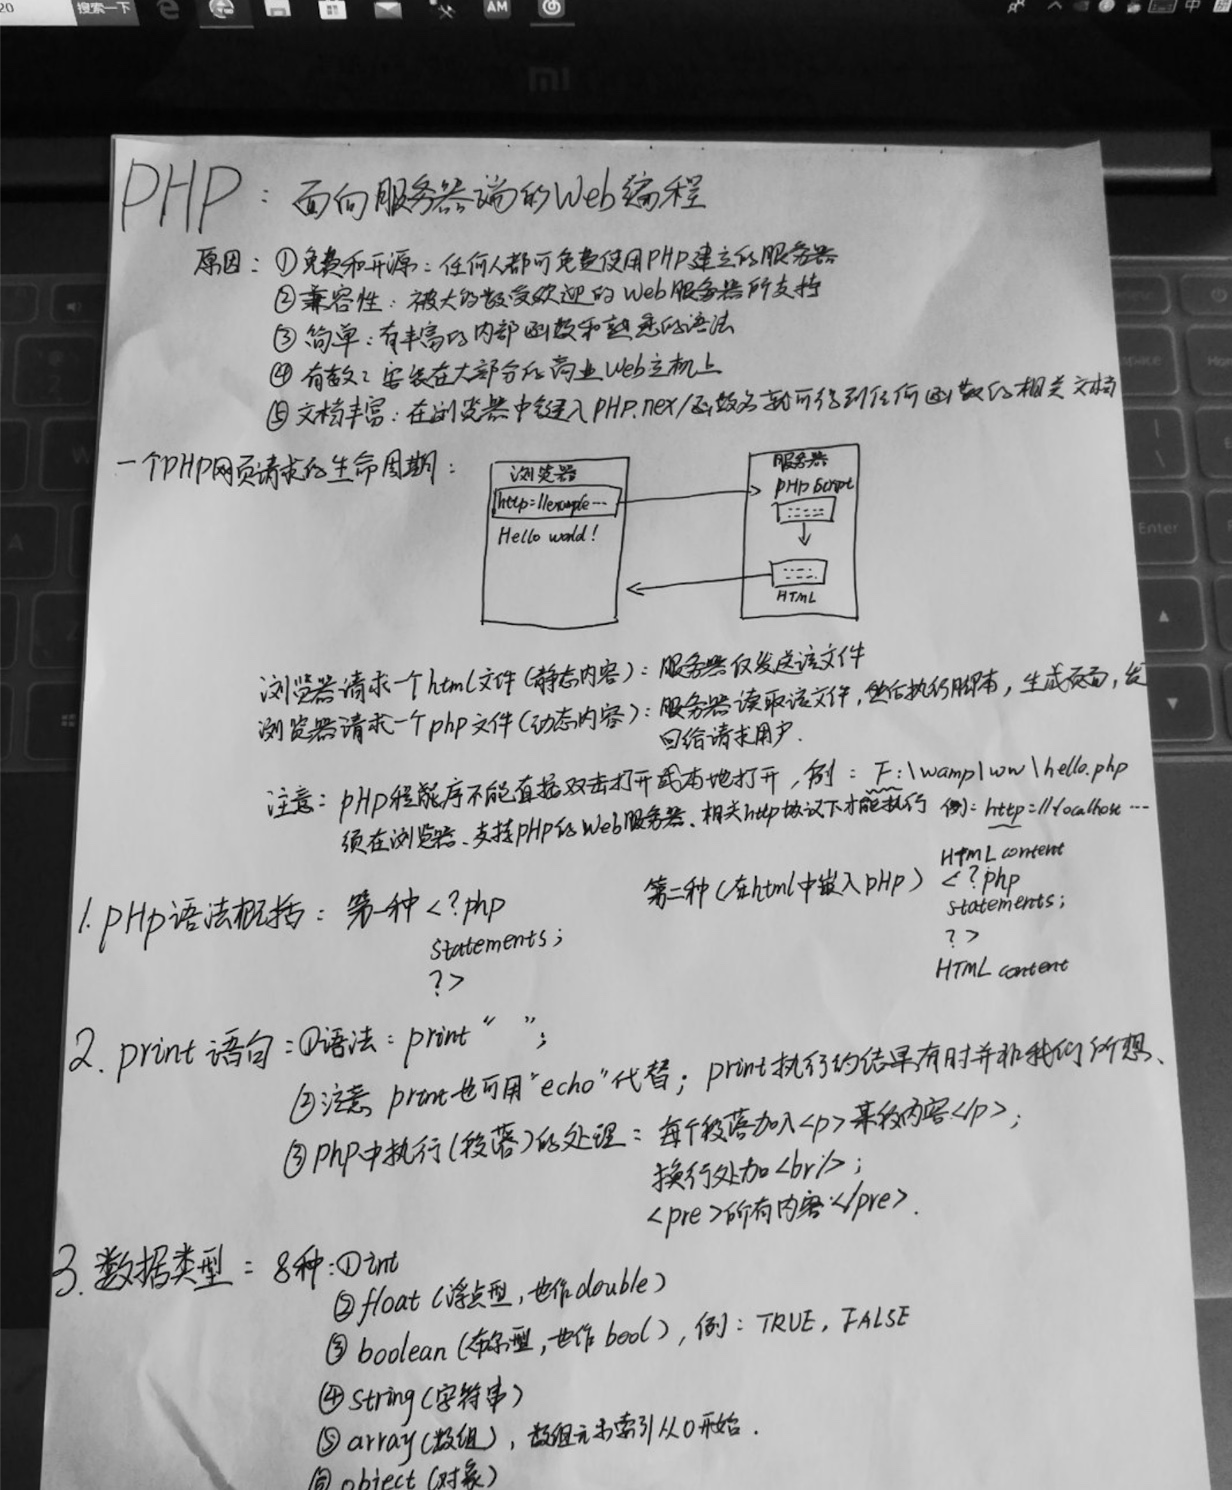 20 搜索一下
AM
中
mi
PHP：面向服务器端的Web编程
原因：①免费和开源：任何人都可免费使用PHP建立的服务器
②兼容性：被大的数受欢迎的Web服务器所支持
③简单：有丰富的内部函数和熟悉的语法
④有效：安装在大部分的商业Web主机上
⑤文档丰富：在浏览器中键入PHP.nex/函数名就可得到任何函数的相关文档
一个PHP网页请求的生命周期：
浏览器
http://example…
Hello world!
服务器
PHP Script
HTML
浏览器请求一个html文件(静态内容)：服务器仅发送该文件
浏览器请求一个php文件(动态内容)：服务器读取该文件,然后执行脚本，生成页面，发
回给请求用户.
注意：PHP程序不能直接双击打开或本地打开,例：F:\wamp\ww\hello.php
须在浏览器、支持PHP的Web服务器、相关http协议下才能执行 例：http://localhost…
1.PHP语法概括：第一种<?php
statements;
?>
第二种(在html中嵌入PHP)
HTML content
<?php
statements;
?>
HTML content
2.print语句：①语法：print“ ”;
②注意 print也可用“echo”代替；print执行的结果有时并非我们所想、
③PhP中执行(段落)的处理：每个段落加入<p>某段内容</p>;
换行处加<br/>;
<pre>所有内容</pre>.
3.数据类型：8种:①int
②float(浮点型,也作double)
③boolean(布尔型,也作bool),例：TRUE,FALSE
④string(字符串)
⑤array(数组),数组元素索引从0开始.
⑥object(对象)
Enter
A